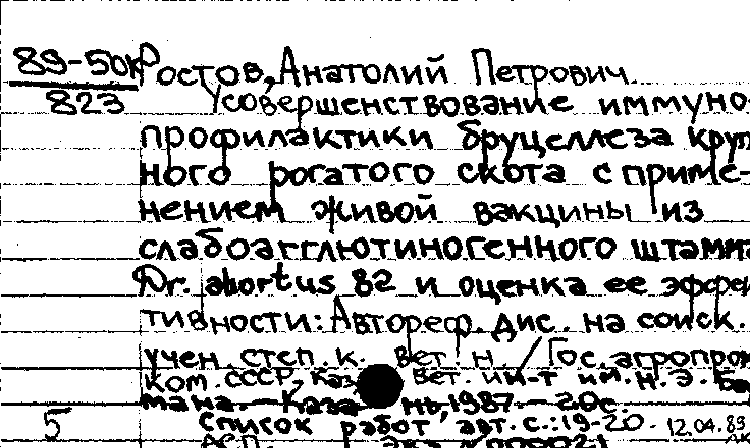 89-50к
823
Ростов, Анатолий Петрович.
Усовершенствование иммуно-
профилактики бруцеллеза круп
ного рогатого скота с приме-
нением живой вакцины из
слабоагглютиногенного штамма
Br. abortus 82 и оценка ее эффек
тивности: Автореф. дис. на соиск.
учен. степ. к. вет. н. / Гос. агропром
ком. СССР, Каз вет. ин-т им. Н. Э. Ба
мана. - Каза нь, 1987. - 20с.
5 Список работ авт. с.: 19-20. 12.04.89